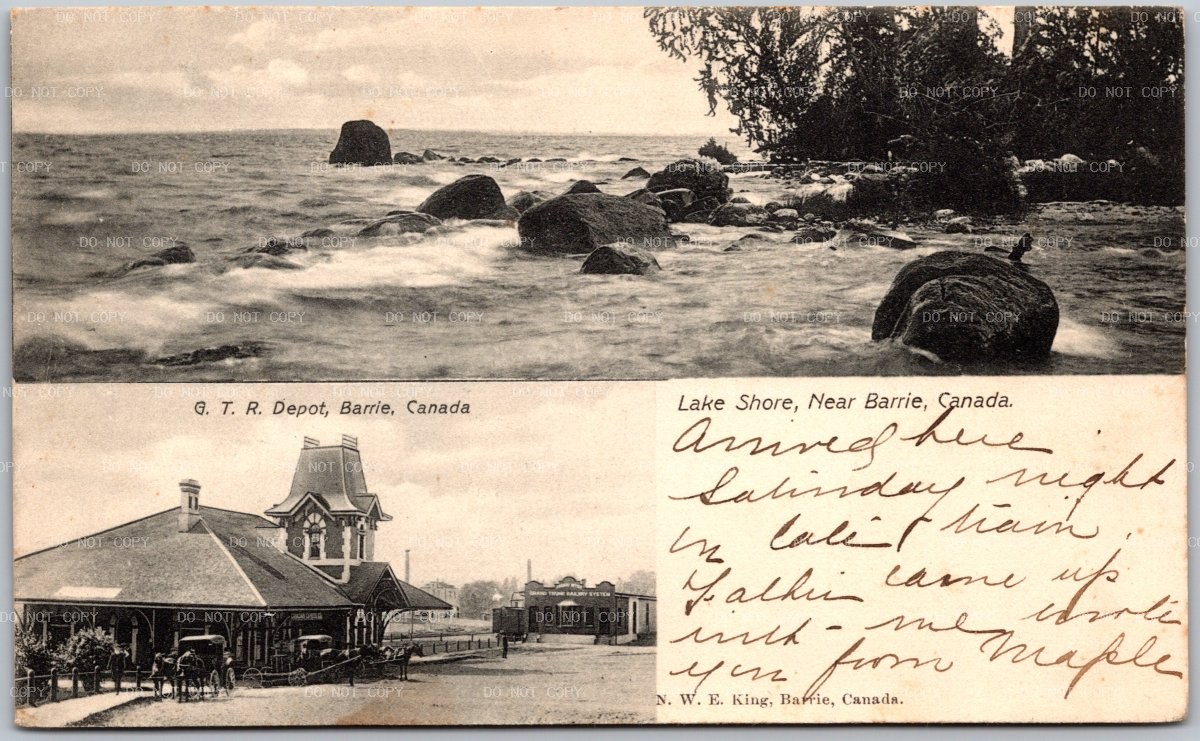 G. T. R. Depot, Barrie, Canada
Lake Shore, Near Barrie, Canada.
Arrived here
Saturday night
on late train.
Father came up
with me wrote
you from Maple
GRAND TRUNK RAILWAY SYSTEM
N. W. E. King, Barrie, Canada.
DO NOT COPY